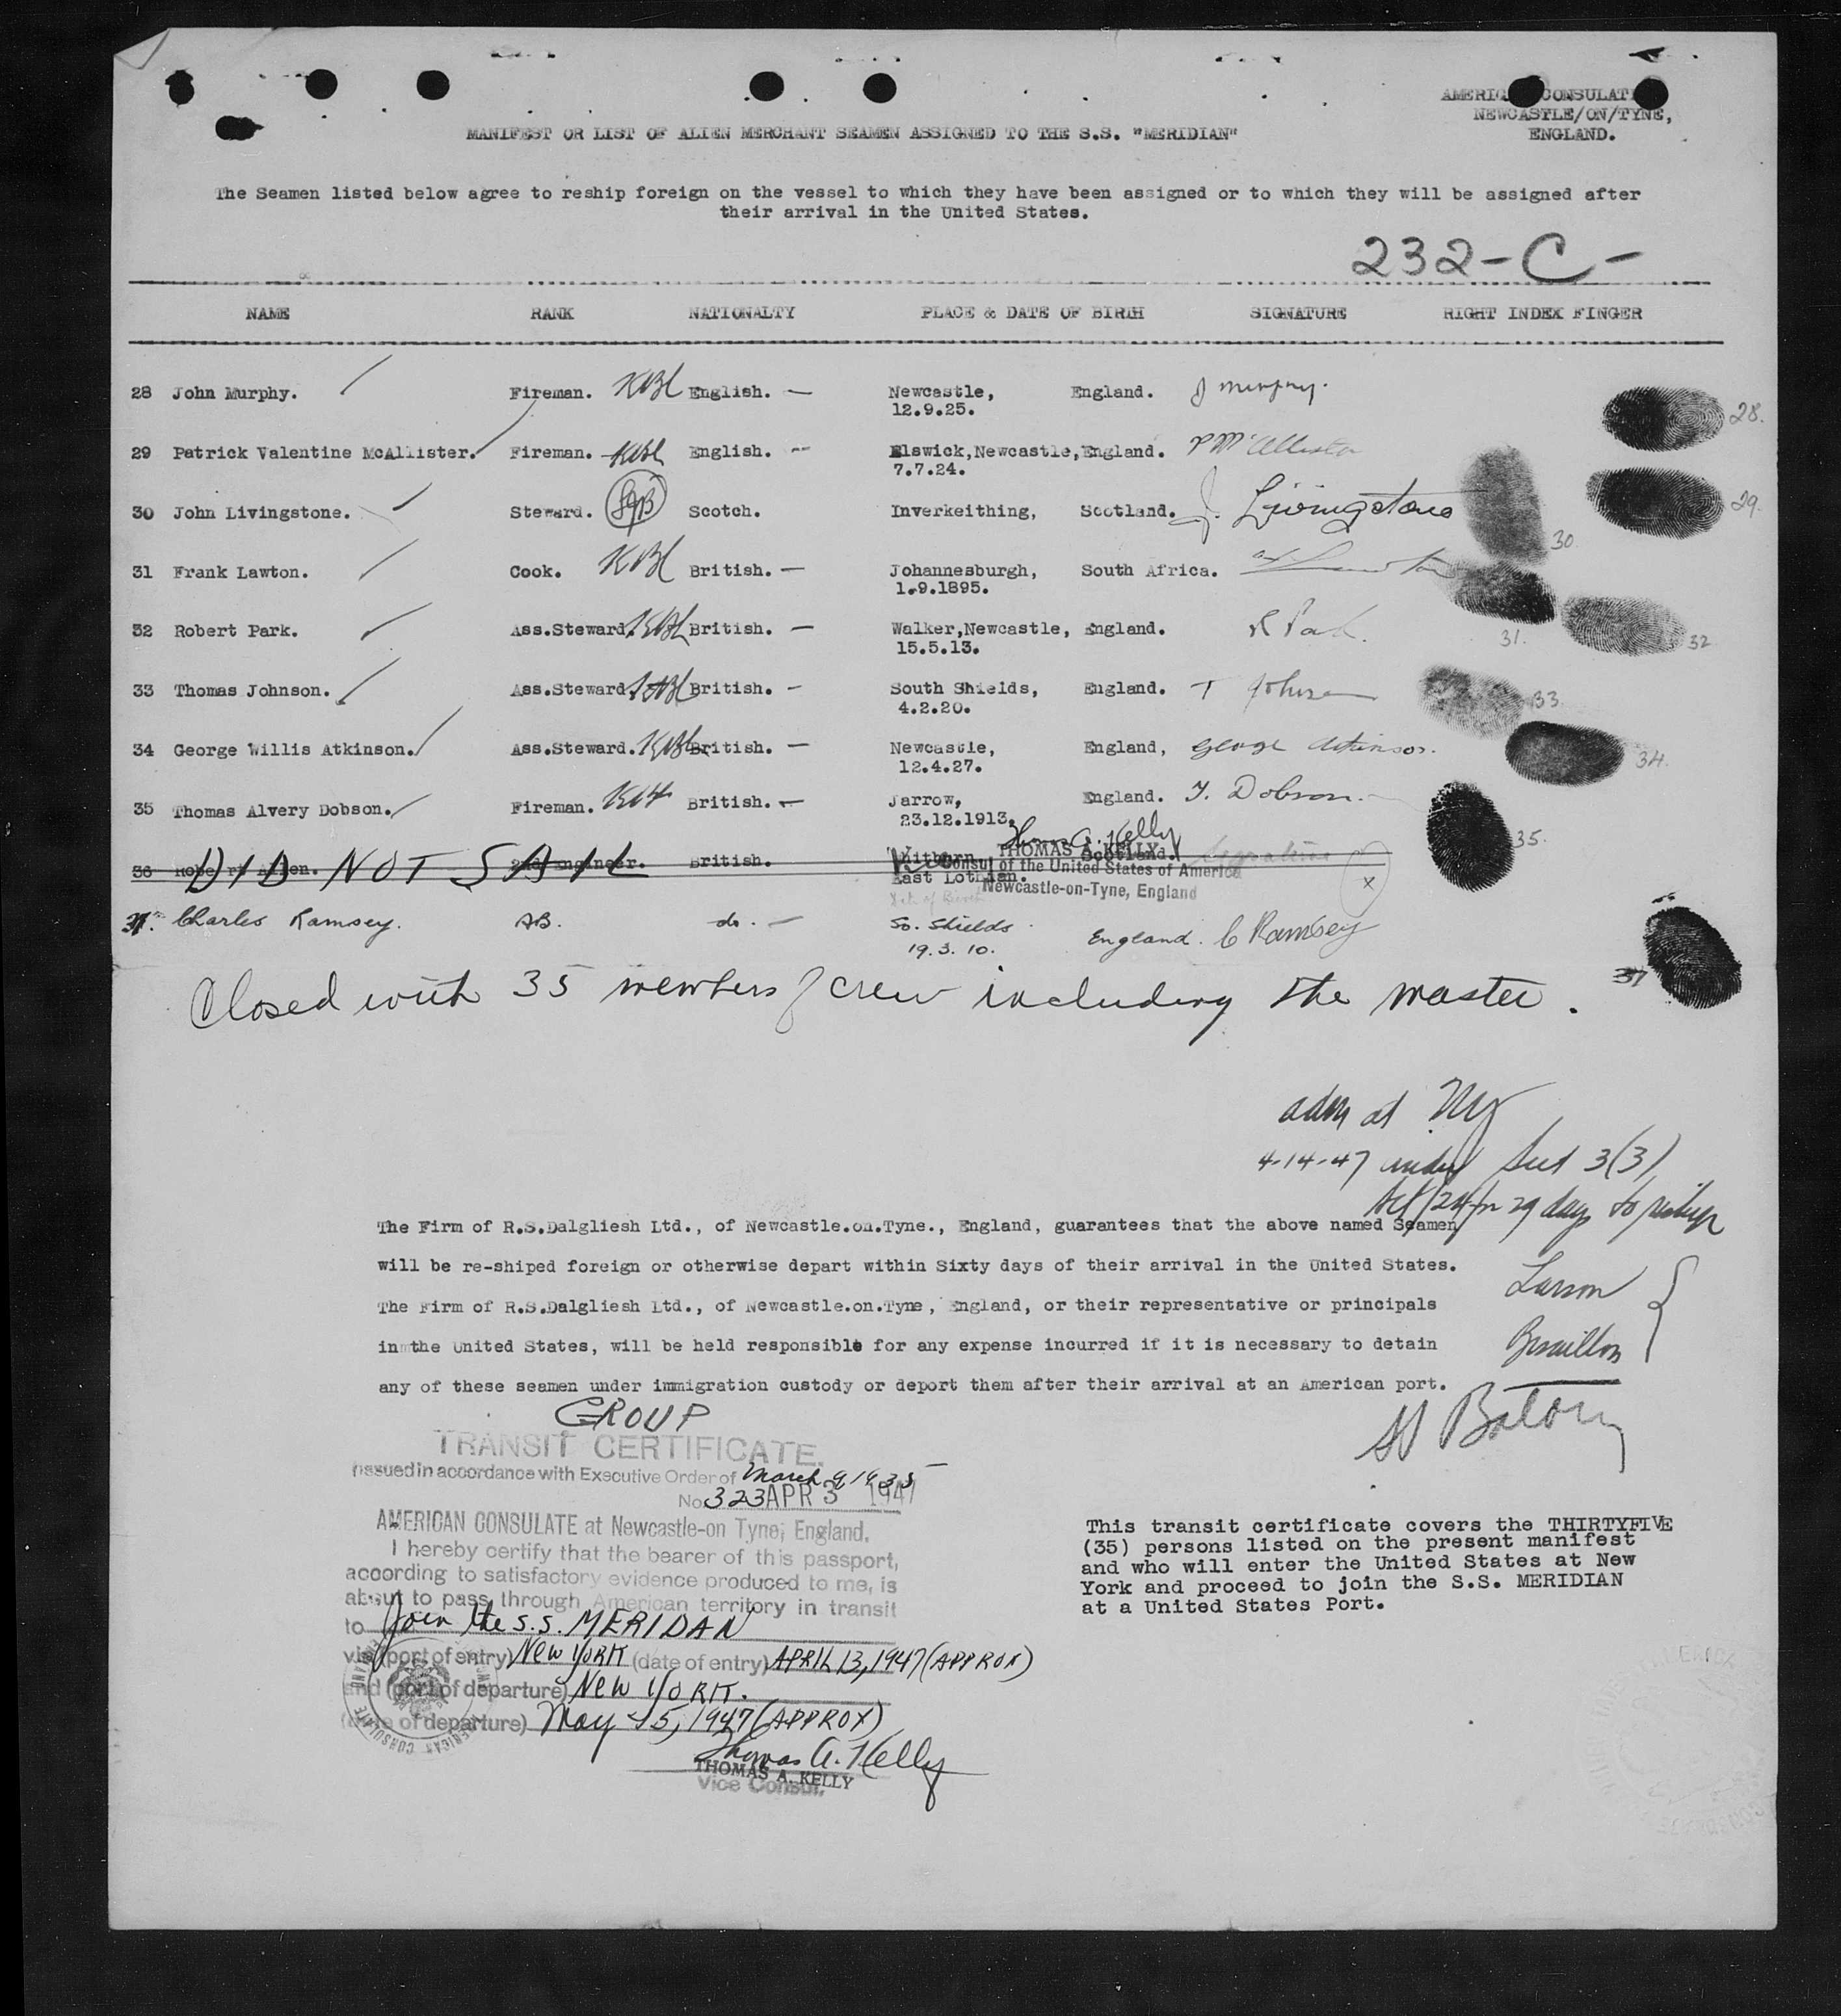 AMERICAN CONSULATE
NEWCASTLE/ON/TYNE,
ENGLAND.
MANIFEST OR LIST OF ALIEN MERCHANT SEAMEN ASSIGNED TO THE S.S. "MERIDIAN"
The Seamen listed below agree to reship foreign on the vessel to which they have been assigned or to which they will be assigned after
their arrival in the United States.
232-C-
NAME RANK NATIONALTY PLACE & DATE OF BIRTH SIGNATURE RIGHT INDEX FINGER
28 John Murphy. Fireman. English. — Newcastle, England. J Murphy. 28.
12.9.25.
29 Patrick Valentine McAllister. Fireman. English. — Elswick,Newcastle,England. P McAllister 29.
7.7.24.
30 John Livingstone. Steward. Scotch. Inverkeithing, Scotland. J. Livingstone 30
31 Frank Lawton. Cook. British. — Johannesburgh, South Africa. Lawton 31.
1.9.1895.
32 Robert Park. Ass.Steward. British. — Walker,Newcastle, England. R Park. 32
15.5.13.
33 Thomas Johnson. Ass.Steward. British. — South Shields, England. T Johnson 33
4.2.20.
34 George Willis Atkinson. Ass.Steward. British. — Newcastle, England, George Atkinson. 34.
12.4.27.
35 Thomas Alvery Dobson. Fireman. British. — Jarrow, England. T. Dobson. 35.
23.12.1913.
Thomas A. Kelly
THOMAS A. KELLY
36 Robert Allen. 2nd Engineer. British. Scotland.
DID NOT SAIL
Consul of the United States of America
East Lothian.
Newcastle-on-Tyne, England
37. Charles Ramsey. AB. do. — So. Shields England. C Ramsey
19.3.10.
37
Closed with 35 members of crew including the master.
adm at NY
4-14-47 under Sect 3(3)
Act/24 for 29 days to reship
The Firm of R.S.Dalgliesh Ltd., of Newcastle.on.Tyne., England, guarantees that the above named Seamen
will be re-shiped foreign or otherwise depart within Sixty days of their arrival in the United States.
The Firm of R.S.Dalgliesh Ltd., of Newcastle.on.Tyne, England, or their representative or principals
in the United States, will be held responsible for any expense incurred if it is necessary to detain
any of these seamen under immigration custody or deport them after their arrival at an American port.
Larson
GROUP
TRANSIT CERTIFICATE.
Issued in accordance with Executive Order of March 9 1935
No. 323 APR 3 1947
AMERICAN CONSULATE at Newcastle-on Tyne, England.
I hereby certify that the bearer of this passport,
according to satisfactory evidence produced to me, is
about to pass through American territory in transit
to Join the S.S. MERIDAN
via (port of entry) NEW YORK (date of entry) APRIL 13, 1947 (APPROX)
and (port of departure) NEW YORK.
(date of departure) May 15, 1947 (APPROX)
Thomas A. Kelly
THOMAS A. KELLY
Vice Consul.
This transit certificate covers the THIRTYFIVE
(35) persons listed on the present manifest
and who will enter the United States at New
York and proceed to join the S.S. MERIDIAN
at a United States Port.